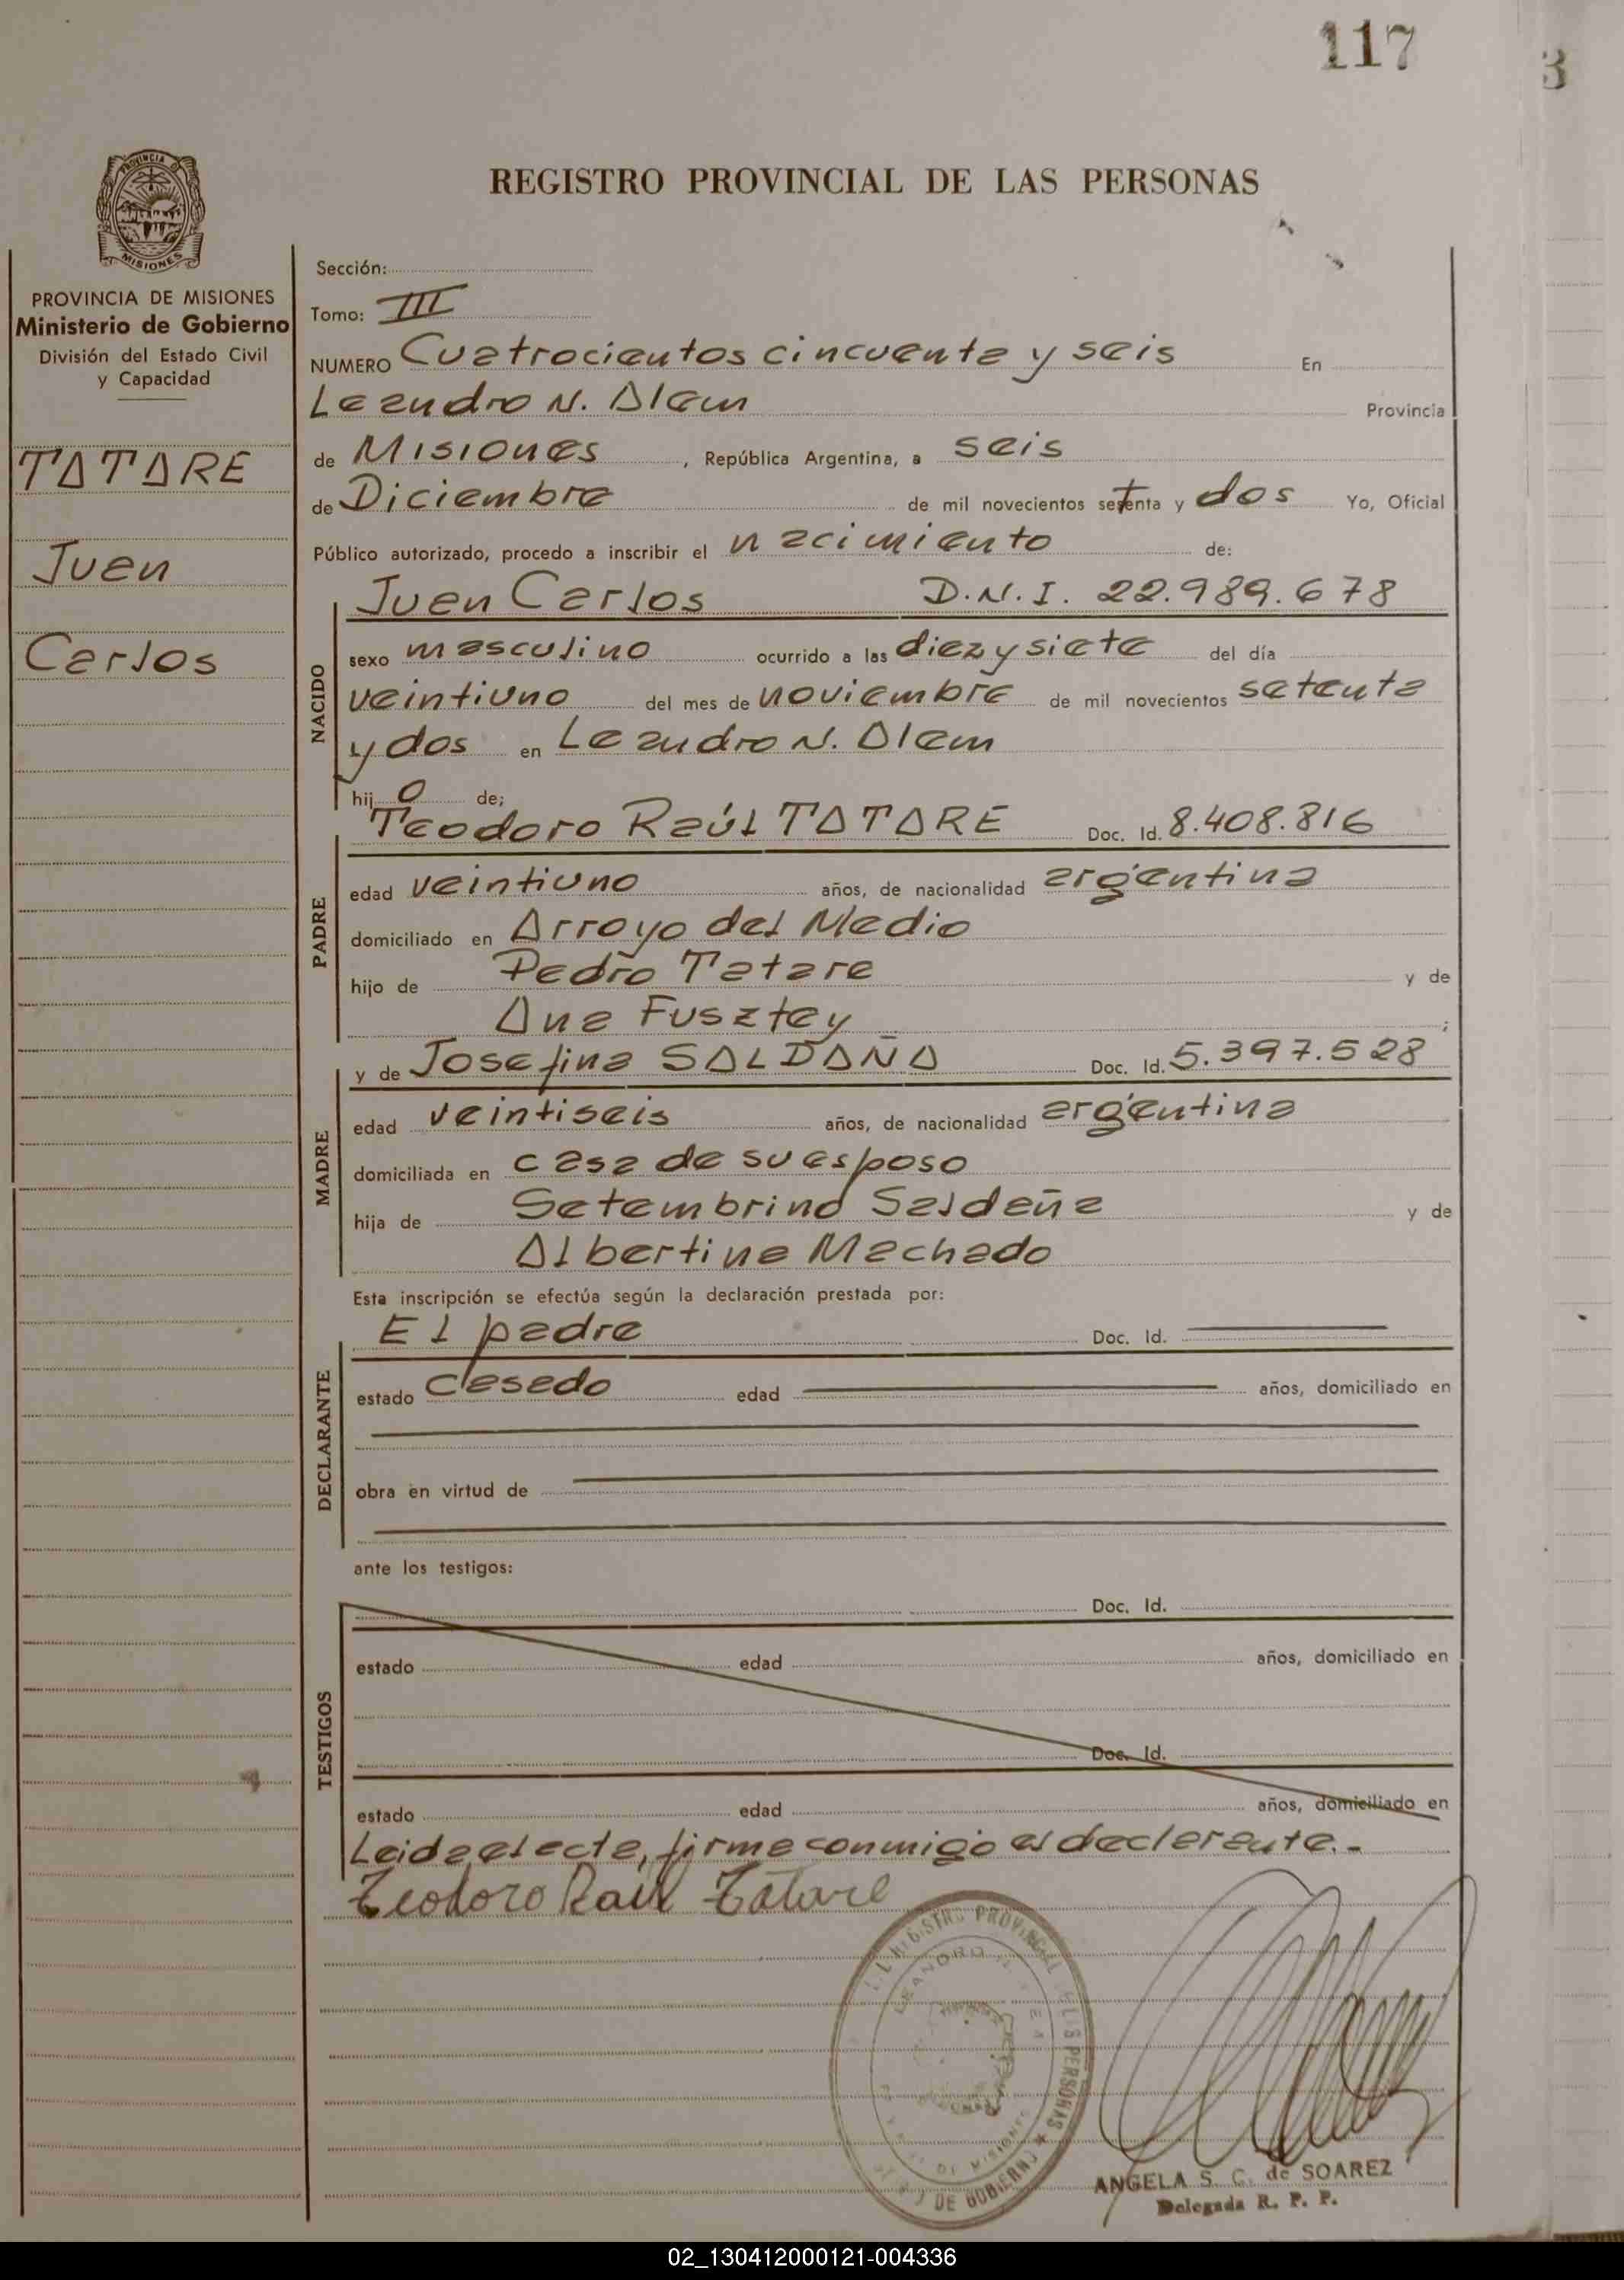 117
3
PROVINCIA DE
MISIONES
REGISTRO PROVINCIAL DE LAS PERSONAS
PROVINCIA DE MISIONES
Ministerio de Gobierno
División del Estado Civil
y Capacidad
TATARE
Juan
Carlos
Sección:
Tomo: III
NUMERO Cuatrocientos cincuenta y seis En
Leandro N. Alem Provincia
de Misiones, República Argentina, a seis
de Diciembre de mil novecientos setenta y dos Yo, Oficial
Público autorizado, procedo a inscribir el nacimiento de:
Juan Carlos D.N.I. 22.989.678
NACIDO
sexo masculino ocurrido a las diez y siete del día
veintiuno del mes de noviembre de mil novecientos setenta
y dos en Leandro N. Alem
hijo de;
Teodoro Raúl TATARE Doc. Id. 8.408.816
PADRE
edad veintiuno años, de nacionalidad argentina
domiciliado en Arroyo del Medio
hijo de Pedro Tatare y de
Ana Fusztey ;
y de Josefina SALDAÑA Doc. Id. 5.397.528
MADRE
edad veintiseis años, de nacionalidad argentina
domiciliada en casa de su esposo
hija de Setembrino Saldaña y de
Albertina Machado
Esta inscripción se efectúa según la declaración prestada por:
El padre Doc. Id.
DECLARANTE
estado casado edad años, domiciliado en
obra en virtud de
ante los testigos:
Doc. Id.
TESTIGOS
estado edad años, domiciliado en
Doc. Id.
estado edad años, domiciliado en
Leida el acta, firma conmigo el declarante.-
Teodoro Raúl Tatare
REGISTRO PROVINCIAL DE LAS PERSONAS
LEANDRO N. ALEM
DE MISIONES
DE GOBIERNO
ANGELA S. C. de SOAREZ
Delegada R. P. P.
02_130412000121-004336